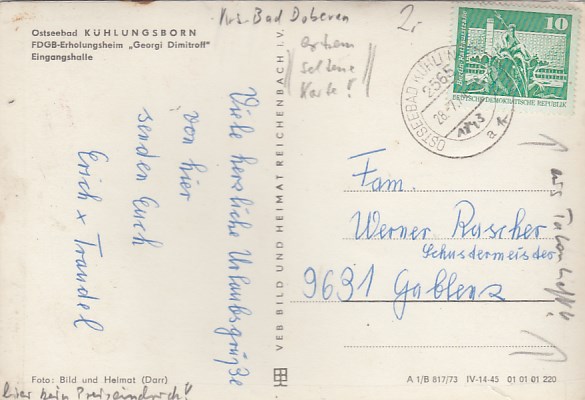 Ostseebad KÜHLUNGSBORN
FDGB-Erholungsheim „Georgi Dimitroff"
Eingangshalle
Krs. Bad Doberan
2,-
extrem
seltene
Karte!
Viele herzliche Urlaubsgrüße
von hier
senden Euch
Erich & Traudel
VEB BILD UND HEIMAT REICHENBACH i. V.
10
DEUTSCHE DEMOKRATISCHE REPUBLIK
OSTSEEBAD KÜHLUN
2565
a
Fam.
Werner Rascher
Schustermeister
9631 Gablenz
aus
Foto: Bild und Heimat (Darr)
A 1/B 817/73 IV-14-45 01 01 01 220
hier kein Preiseindruck!